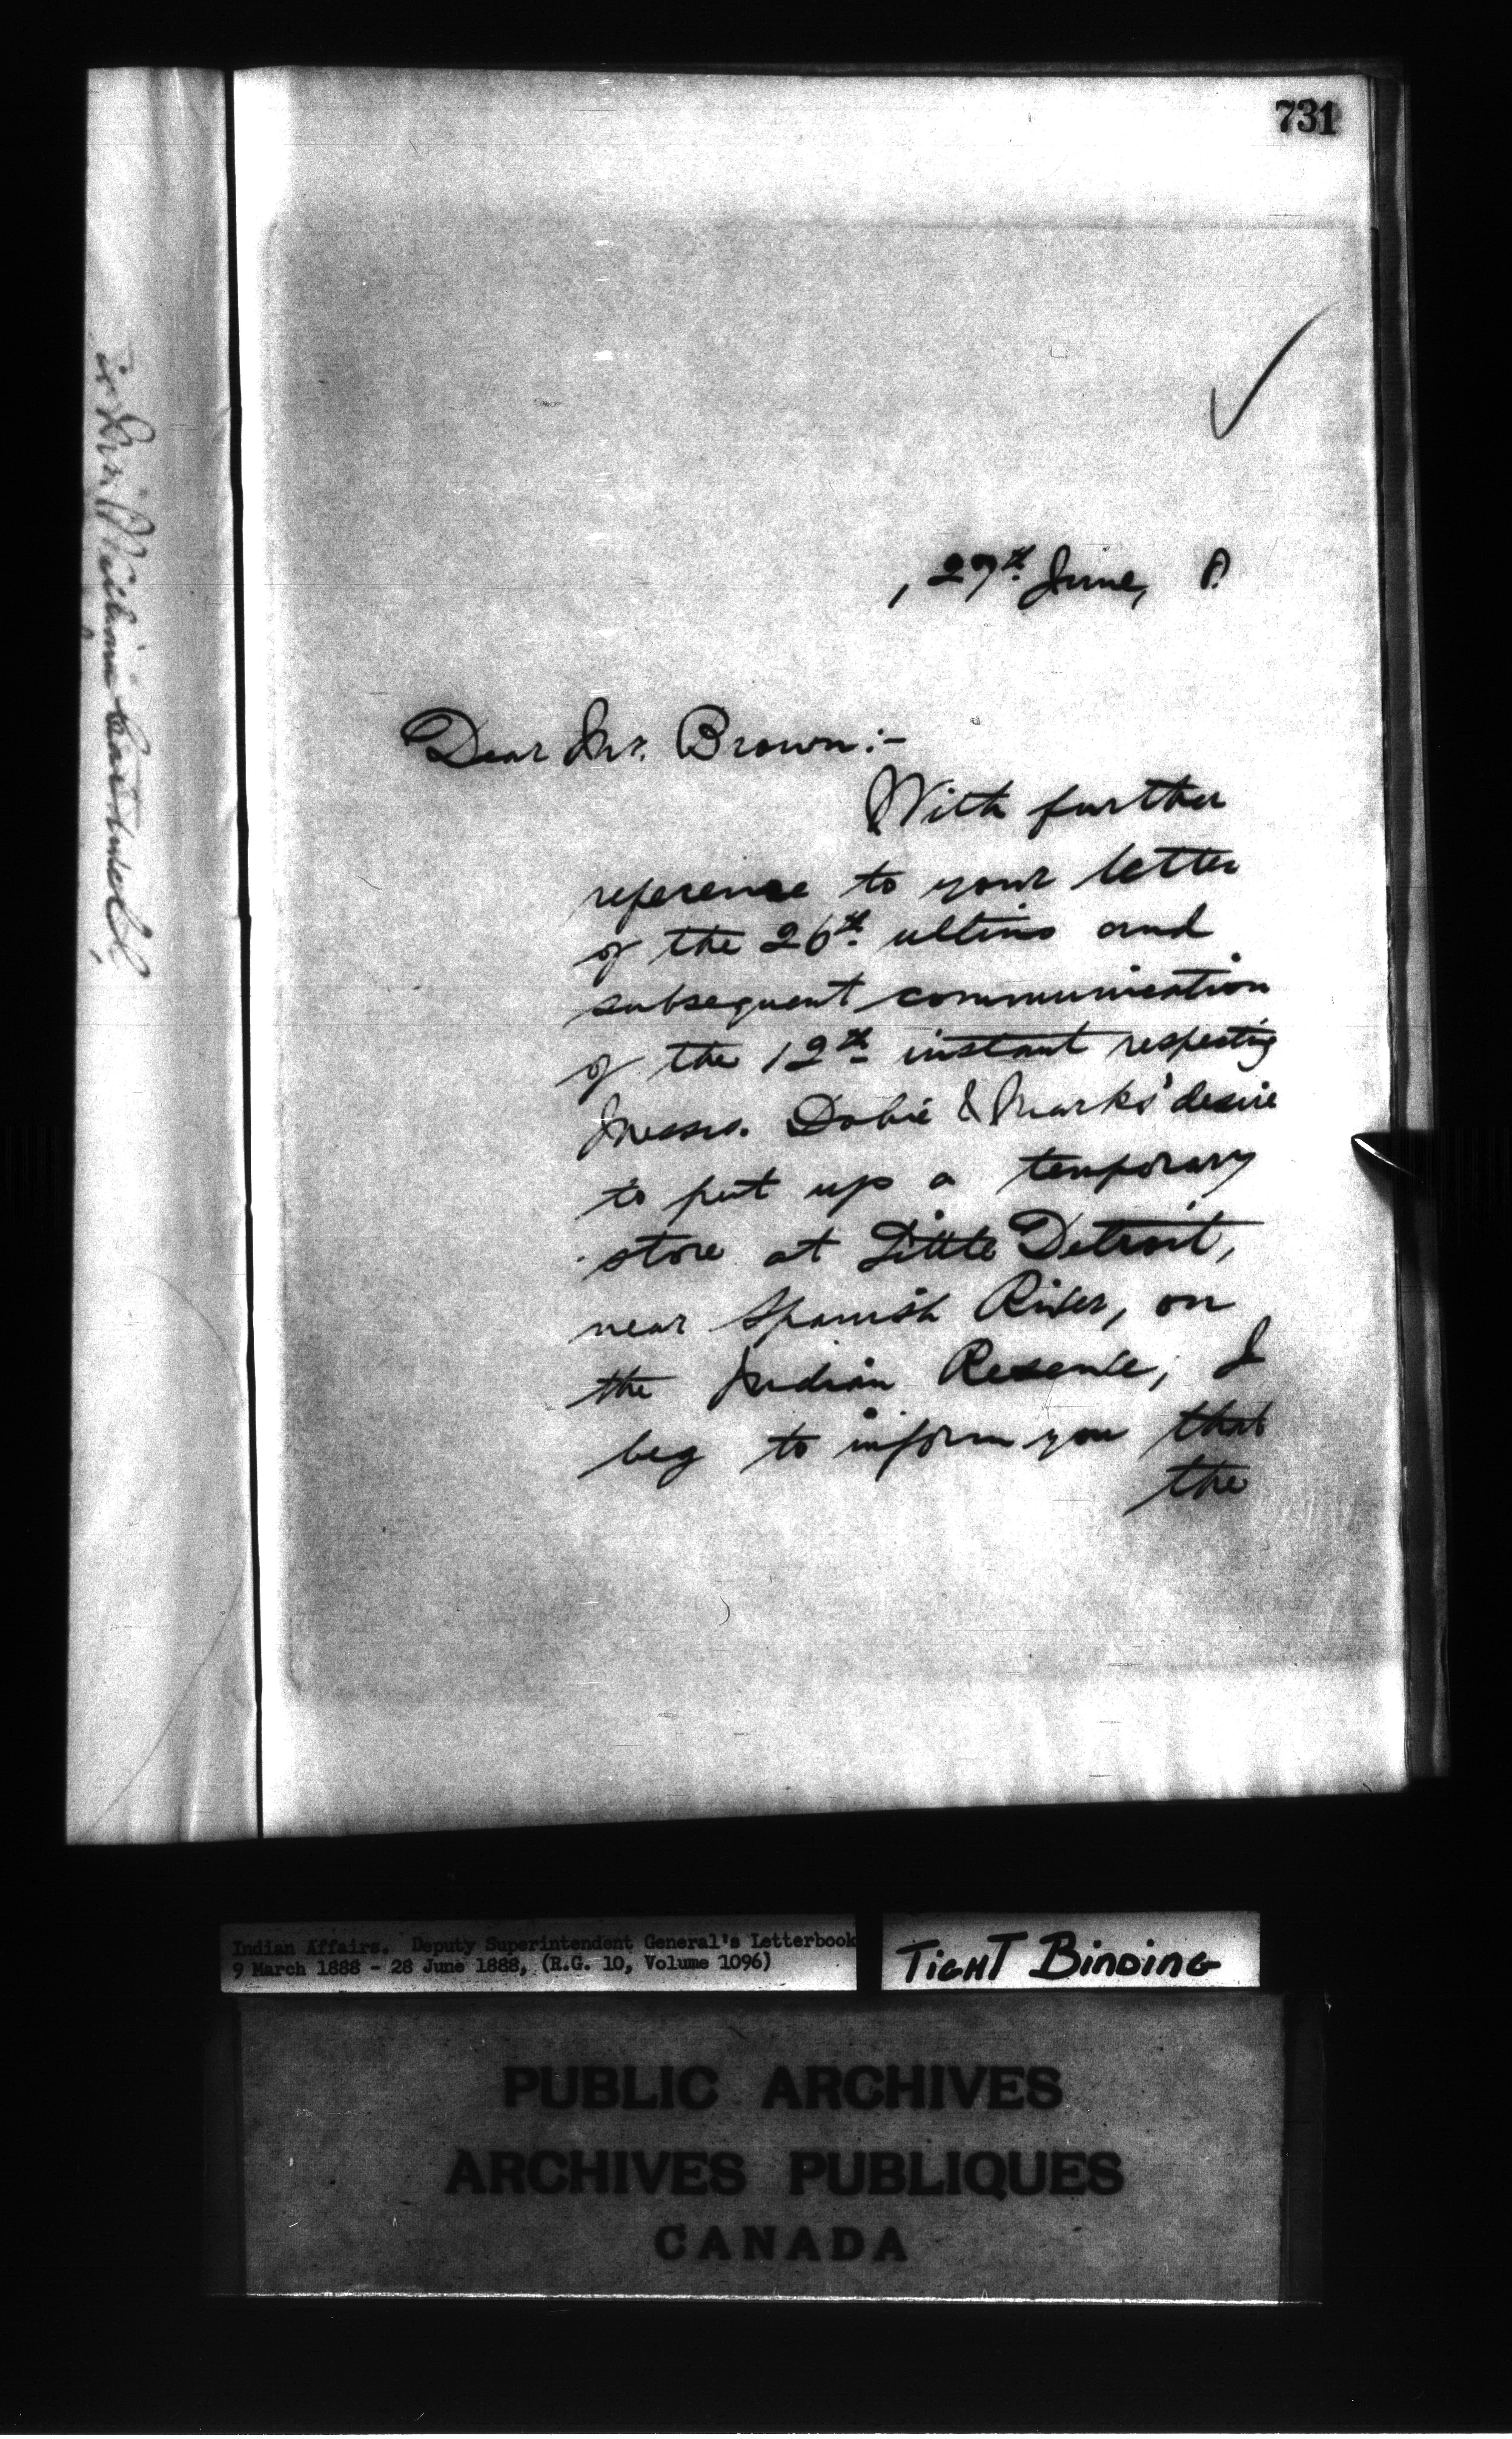 731
, 27th June, 8.
Dear Mr. Brown:-
With further
reference to your letter
of the 26th ultimo and
subsequent communication
of the 12th instant respecting
Messrs. Dobie & Marks' desire
to put up a temporary
store at Little Detroit,
near Spanish River, on
the Indian Reserve; I
beg to inform you that
the
Indian Affairs. Deputy Superintendent General's Letterbook
9 March 1888 - 28 June 1888, (R.G. 10, Volume 1096)
TIGHT BINDING
PUBLIC ARCHIVES
ARCHIVES PUBLIQUES
CANADA